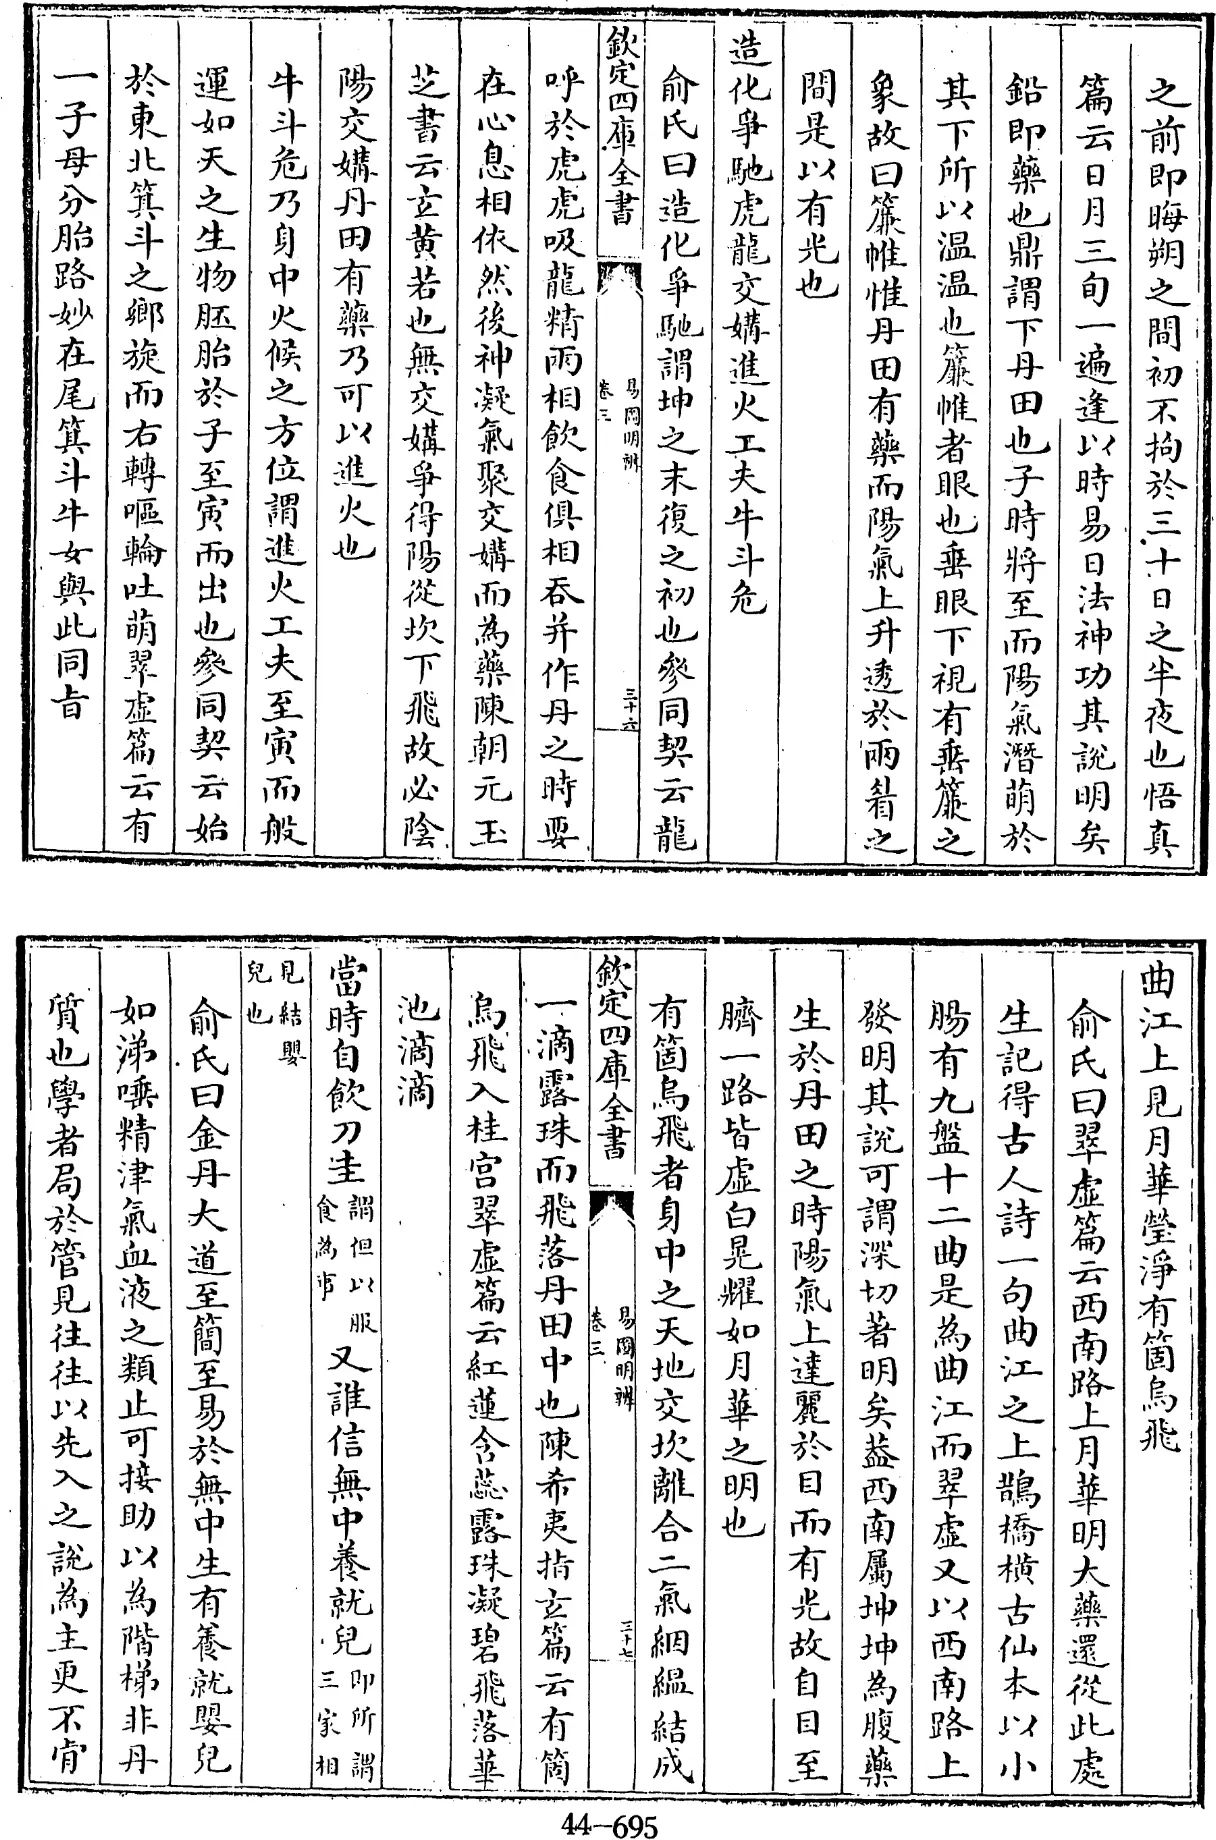 之前即晦朔之間初不拘於三十日之半夜也悟真
篇云日月三旬一遍逢以時易日法神功其說明矣
鉛即藥也鼎謂下丹田也子時將至而陽氣潛萌於
其下所以温温也簾帷者眼也垂眼下視有垂簾之
象故曰簾帷惟丹田有藥而陽氣上升透於兩眉之
間是以有光也
造化爭馳虎龍交媾進火工夫牛斗危
俞氏曰造化爭馳謂坤之末復之初也參同契云龍
欽定四庫全書
易圖明辨
卷三
三十六
呼於虎虎吸龍精兩相飲食俱相吞并作丹之時要
在心息相依然後神凝氣聚交媾而為藥陳朝元玉
芝書云玄黄若也無交媾爭得陽從坎下飛故必陰
陽交媾丹田有藥乃可以進火也
牛斗危乃身中火候之方位謂進火工夫至寅而般
運如天之生物胚胎於子至寅而出也參同契云始
於東北箕斗之鄉旋而右轉嘔輪吐萌翠虚篇云有
一子母分胎路妙在尾箕斗牛女與此同旨
曲江上見月華瑩淨有箇烏飛
俞氏曰翠虚篇云西南路上月華明大藥還從此處
生記得古人詩一句曲江之上鵲橋橫古仙本以小
腸有九盤十二曲是為曲江而翠虚又以西南路上
發明其說可謂深切著明矣葢西南屬坤坤為腹藥
生於丹田之時陽氣上達麗於目而有光故自目至
臍一路皆虚白晃耀如月華之明也
有箇烏飛者身中之天地交坎離合二氣絪緼結成
欽定四庫全書
易圖明辨
卷三
三十七
一滴露珠而飛落丹田中也陳希夷指玄篇云有箇
烏飛入桂宫翠虚篇云紅蓮含蕊露珠凝碧飛落華
池滴滴
當時自飲刀圭謂但以服食為事又誰信無中養就兒即所謂三家相
見結嬰兒也
俞氏曰金丹大道至簡至易於無中生有養就嬰兒
如涕唾精津氣血液之類止可接助以為階梯非丹
質也學者局於管見往往以先入之說為主更不肯
44-695